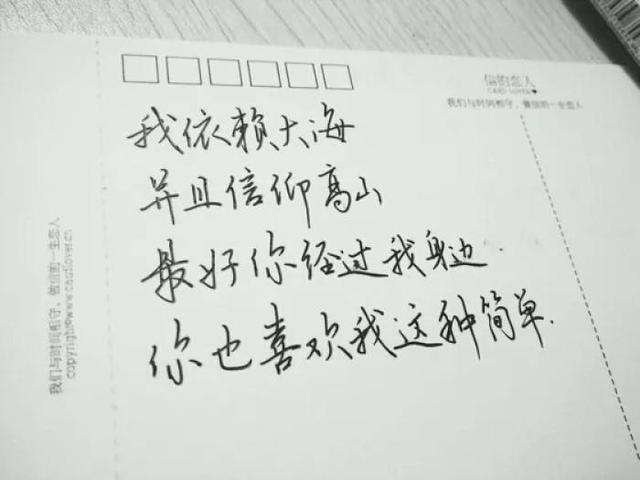 信的恋人
我们与时间相守,做信的一生恋人
我依赖大海
并且信仰高山
最好你经过我身边.
你也喜欢我这种简单.
我们与时间相守,做信的一生恋人